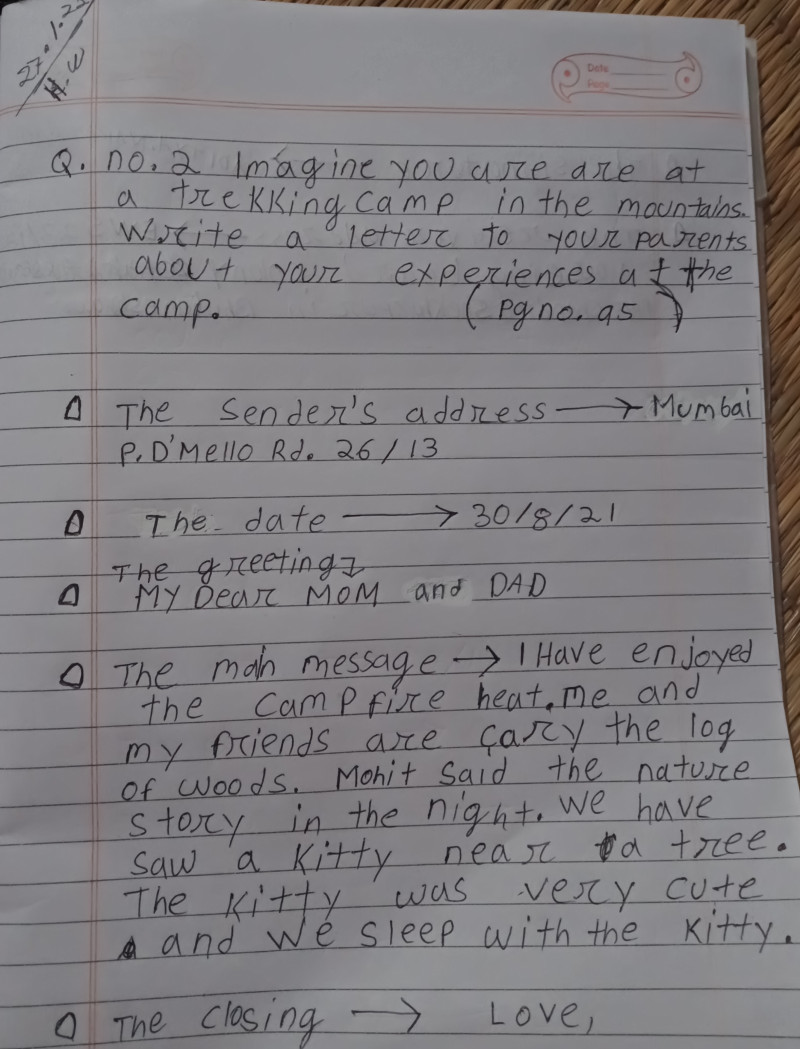 27.1.22
H.W
Date
Page
Q. no. 2 Imagine you are are at
a trekking camp in the mountains.
Write a letter to your parents
about your experiences at the
camp. (Pg no. 95)
The Sender's address → Mumbai
P. D'Mello Rd. 26/13
The date → 30/8/21
The greeting
My Dear MOM and DAD
The main message → I Have enjoyed
the camp fire heat. me and
my friends are cary the log
of woods. Mohit said the nature
story in the night. We have
saw a Kitty near a tree.
The Kitty was very cute
and we sleep with the Kitty.
The closing → Love,